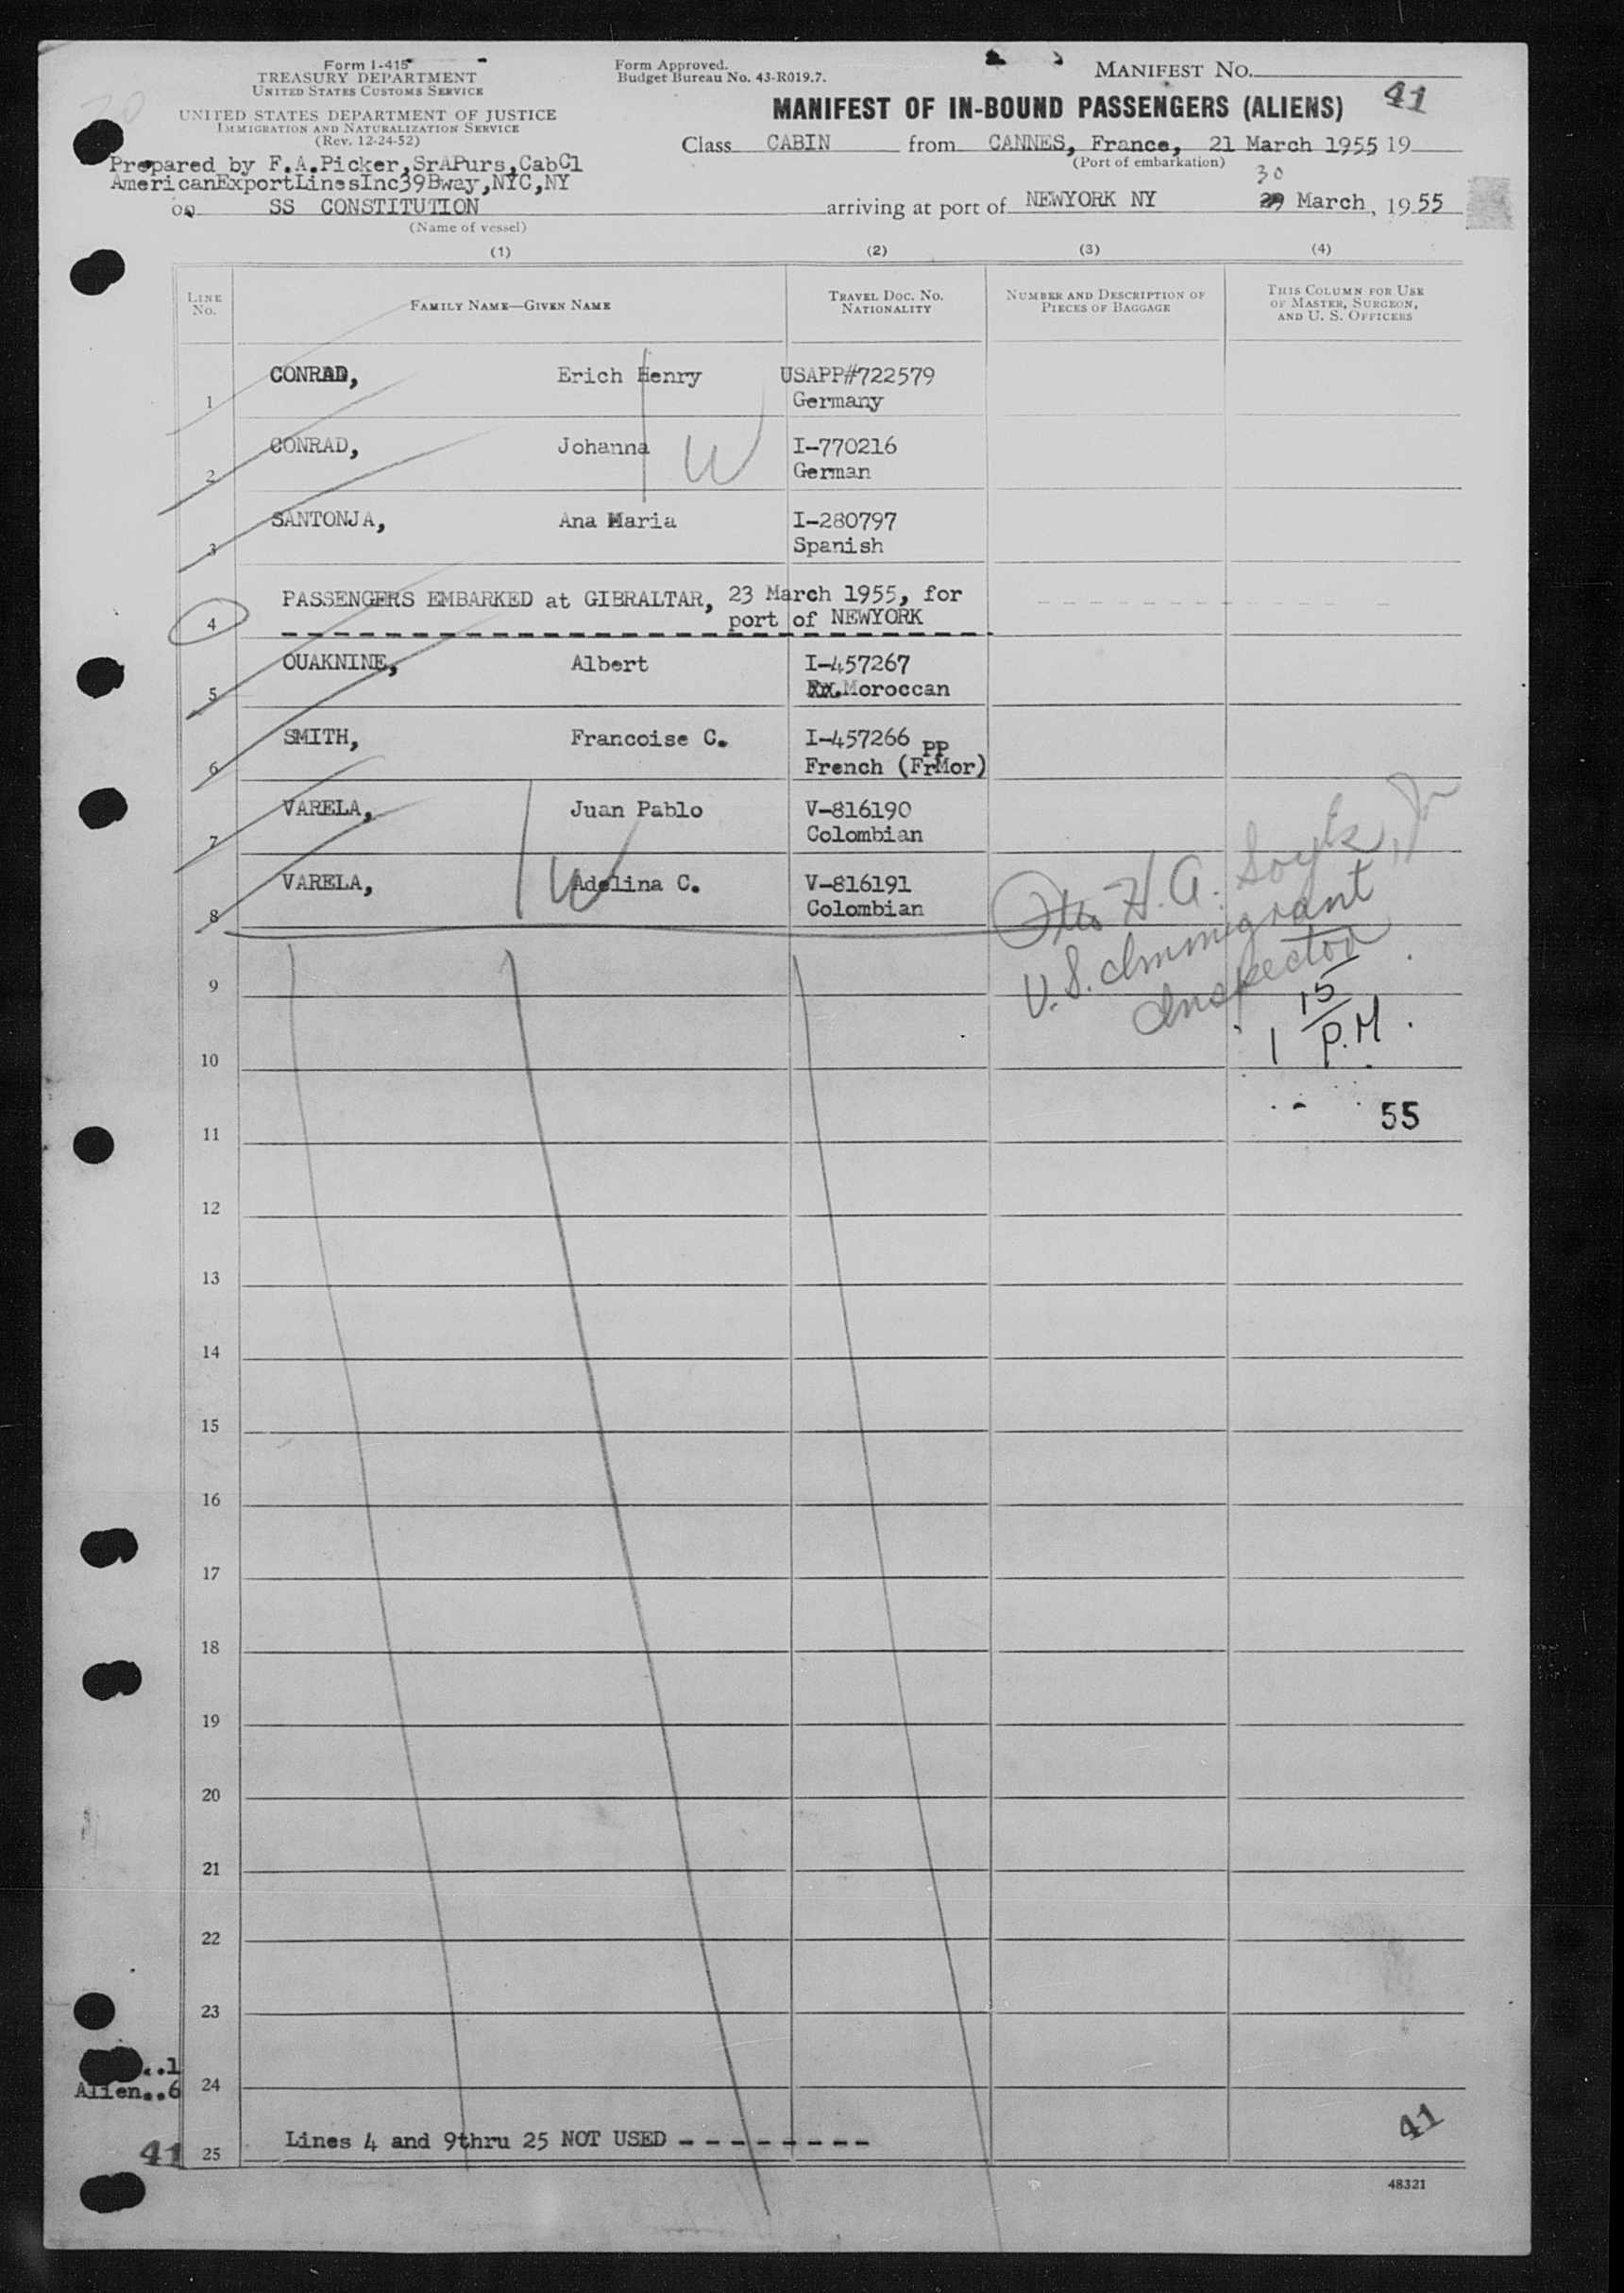 Form I-415
TREASURY DEPARTMENT
UNITED STATES CUSTOMS SERVICE
UNITED STATES DEPARTMENT OF JUSTICE
IMMIGRATION AND NATURALIZATION SERVICE
(Rev. 12-24-52)
Form Approved.
Budget Bureau No. 43-R019.7.
MANIFEST NO.
41
MANIFEST OF IN-BOUND PASSENGERS (ALIENS)
Class CABIN from CANNES, France, 21 March 1955 19
(Port of embarkation)
Prepared by F.A.Picker,SrAPurs,CabCl
AmericanExportLinesInc39Bway,NYC,NY
30
on SS CONSTITUTION arriving at port of NEWYORK NY 29 March, 19 55
(Name of vessel)
(1) (2) (3) (4)
LINE NO. FAMILY NAME—GIVEN NAME TRAVEL DOC. NO. NATIONALITY NUMBER AND DESCRIPTION OF PIECES OF BAGGAGE THIS COLUMN FOR USE OF MASTER, SURGEON, AND U. S. OFFICERS
1 CONRAD, Erich Henry USAPP#722579
Germany
2 CONRAD, Johanna W I-770216
German
3 SANTONJA, Ana Maria I-280797
Spanish
4 PASSENGERS EMBARKED at GIBRALTAR, 23 March 1955, for
port of NEWYORK
5 OUAKNINE, Albert I-457267
Moroccan
6 SMITH, Francoise C. I-457266
PP
French (FrMor)
7 VARELA, Juan Pablo V-816190
Colombian
8 VARELA, W Adelina C. V-816191
Colombian
H.A.
U.S. Immigrant
Inspector
1 15 P.M.
55
9
10
11
12
13
14
15
16
17
18
19
20
21
22
23
..1
Alien..6
24
41
25 Lines 4 and 9thru 25 NOT USED - - - - - - - -
41
48321